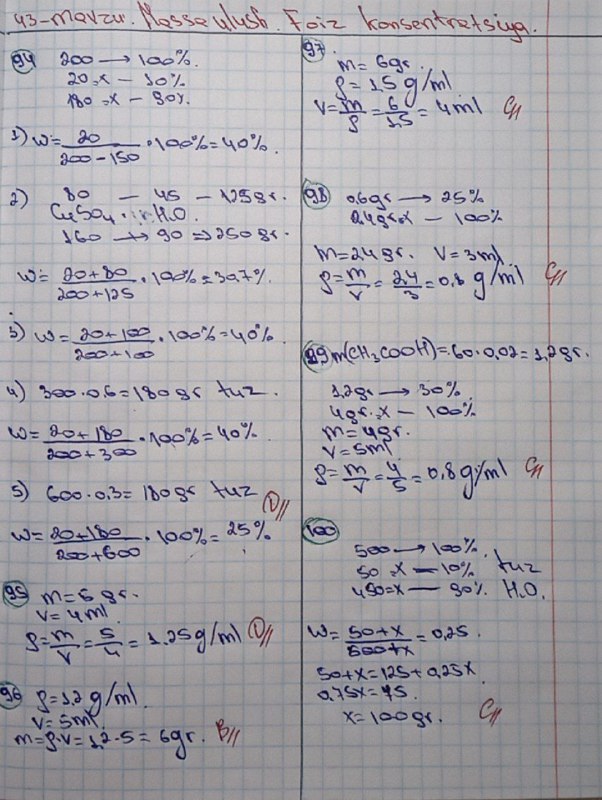 43-mavzu. Massa ulush. Foiz konsentratsiya.
94 200 → 100%.
20=x — 10%
180=x — 90%.
1) W = 20/(200-150) · 100% = 40%.
2) 80 — 45 — 125gr.
CuSO4 · H2O.
160 → 90 => 250gr.
W = (20+80)/(200+125) · 100% = 30.7%.
3) W = (20+100)/(200+100) · 100% = 40%
4) 300·0.6 = 180gr tuz.
W = (20+180)/(200+300) · 100% = 40%.
5) 600·0.3 = 180gr tuz D//
W = (20+180)/(200+600) · 100% = 25%
95 m = 5gr.
V = 4ml.
ρ = m/V = 5/4 = 1.25g/ml D//
96 ρ = 1.2g/ml.
V = 5ml.
m = ρ·V = 1.2·5 = 6gr. B//
97.
m = 6gr.
ρ = 1.5g/ml
V = m/ρ = 6/1.5 = 4ml C//
98 0.6gr → 25%
2.4gr=x — 100%
m = 2.4gr. V = 3ml.
ρ = m/V = 2.4/3 = 0.8g/ml. C//
99 m(CH3COOH) = 60·0.02 = 1.2gr.
1.2gr → 30%
4gr=x — 100%
m = 4gr.
V = 5ml
ρ = m/V = 4/5 = 0.8g/ml C//
100
500 → 100%.
50=x — 10% tuz
450=x — 90% H2O.
W = (50+x)/(500+x) = 0.25.
50+x = 125+0.25x
0.75x = 75.
x = 100gr. C//